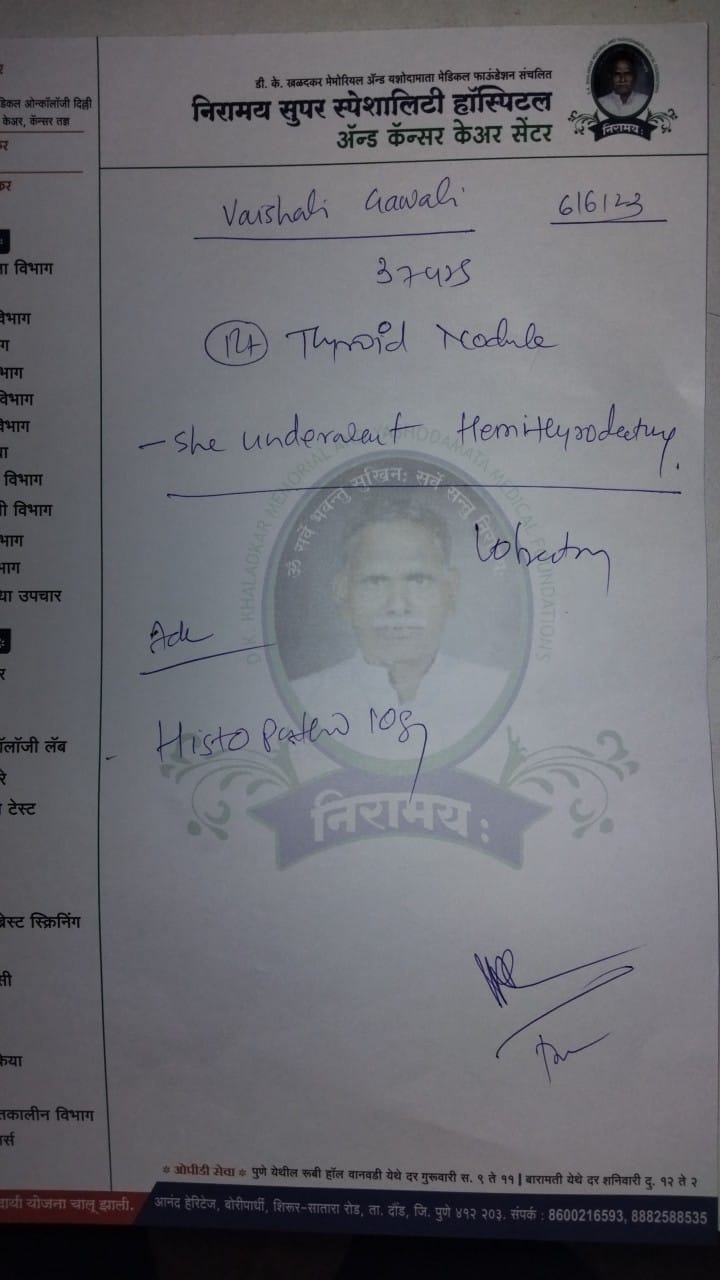 डी. के. खळदकर मेमोरियल ॲन्ड यशोदामाता मेडिकल फाऊंडेशन संचलित
निरामय सुपर स्पेशालिटी हॉस्पिटल
ॲन्ड कॅन्सर केअर सेंटर
निरामयः
डिकल ओन्कॉलॉजी दिल्ली
केअर, कॅन्सर तज्ञ
Vaishali Gawali
6/6/23
37yrs
Rt Thyroid Nodule
- She underwent Hemithyrodectomy.
Lobectomy
Adv
- Histopathology
ॐ सर्वे भवन्तु सुखिनः सर्वे सन्तु
D.K. KHALADKAR MEMORIAL AND YASHODAMATA MEDICAL FOUNDATIONS
निरामयः
ा विभाग
विभाग
ग
भाग
विभाग
विभाग
या
विभाग
ी विभाग
भाग
भाग
या उपचार
र
ॉलॉजी लॅब
रे
टेस्ट
ब्रेस्ट स्क्रिनिंग
सी
केया
तकालीन विभाग
र्स
* ओपीडी सेवा * पुणे येथील रूबी हॉल वानवडी येथे दर गुरूवारी स. ९ ते ११ | बारामती येथे दर शनिवारी दु. १२ ते २
दायी योजना चालू झाली.
आनंद हेरिटेज, बोरीपार्धी, शिरूर-सातारा रोड, ता. दौंड, जि. पुणे ४१२ २०३. संपर्क : 8600216593, 8882588535